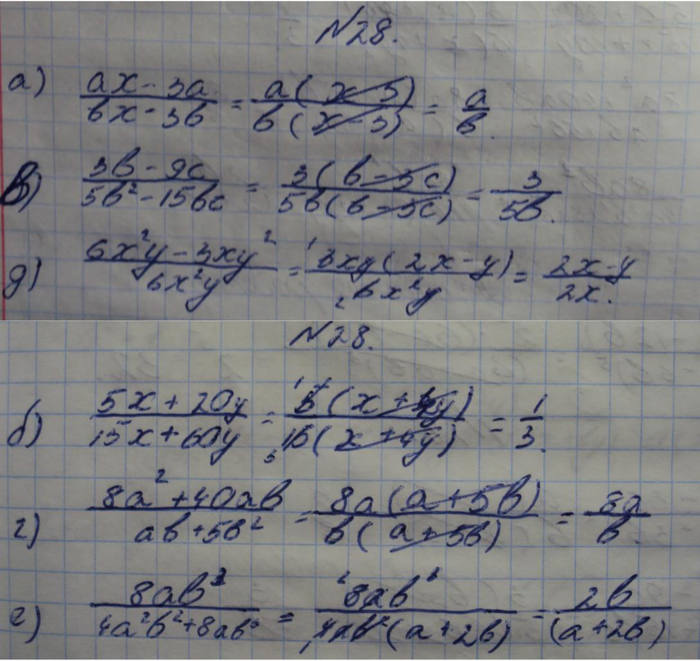 №28.
а) (ax - 3a)/(bx - 3b) = a(x - 3)/b(x - 3) = a/b.
в) (3b - 9c)/(5b² - 15bc) = 3(b - 3c)/5b(b - 3c) = 3/5b.
д) (6x²y - 3xy²)/6x²y = ¹3xy(2x - y)/₂6x²y = (2x - y)/2x.
№28.
б) (5x + 20y)/(15x + 60y) = ¹5(x + 4y)/₃15(x + 4y) = 1/3.
г) (8a² + 40ab)/(ab + 5b²) = 8a(a + 5b)/b(a + 5b) = 8a/b.
е) 8ab³/(4a²b² + 8ab³) = ²8ab³/₁4ab²(a + 2b) = 2b/(a + 2b)